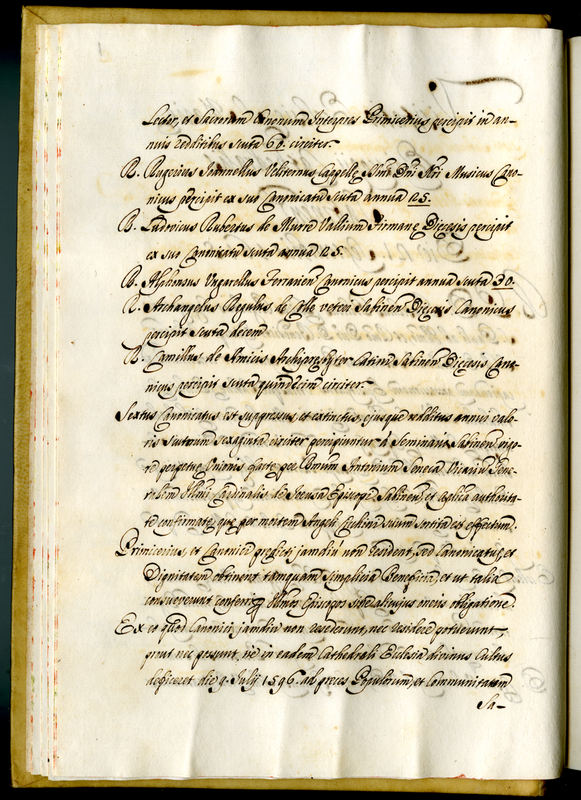 Lector, et Sacrorum Canonum Interpres Primicerius percipit in an-
nuis redditibus scuta 60. circiter.
R. Rugerius Ioannellus Veliternus Cappellę Dñi Nri Musicus Cano-
nicus percipit ex suo Canonicatu scuta annua 125.
R. Ludovicus Rubertus de Muro Vallium Firmanę Diecesis percipit
ex suo Canonicatu scuta annua 125.
R. Alphonsus Ferrarien Canonicus percipit annua scuta 30.
R. Archangelus Regulus de Colle veteri Sabinen Diecesis Canonicus
percipit scuta decem.
R. Camillus de Amicis Archipresbyter Sabinen Diecesis Cano-
nicus percipit scuta quindecim circiter.
Sextus Canonicatus est suppressus, et extinctus, ejusque redditus annui valo-
ris scutorum sexaginta circiter percipiuntur à Seminario Sabinen vigo-
re perpetuę Unionis factę per Antonium Seneca Vicarium Gene-
ralem Illmi Cardinalis de Episcopi Sabinen, et authorita-
te confirmatę, quę per mortem Angeli suum sortita est effectum.
Primicerius, et Canonici prędicti jamdiu non resident, sed Canonicatus, et
Dignitatem obtinent tamquam simplicia Beneficia, et ut talia
consueverunt conferri Illmos Episcopos sine alicujus oneris obligatione.
Ex eo quod Canonici jamdiu non resederunt, nec residere potuerunt,
prout nec possunt, ne in eadem Cathedrali Ecclesia divinus Cultus
deficeret die 9. Julij 1596. ad preces Populorum, et Communitatem
Sa-